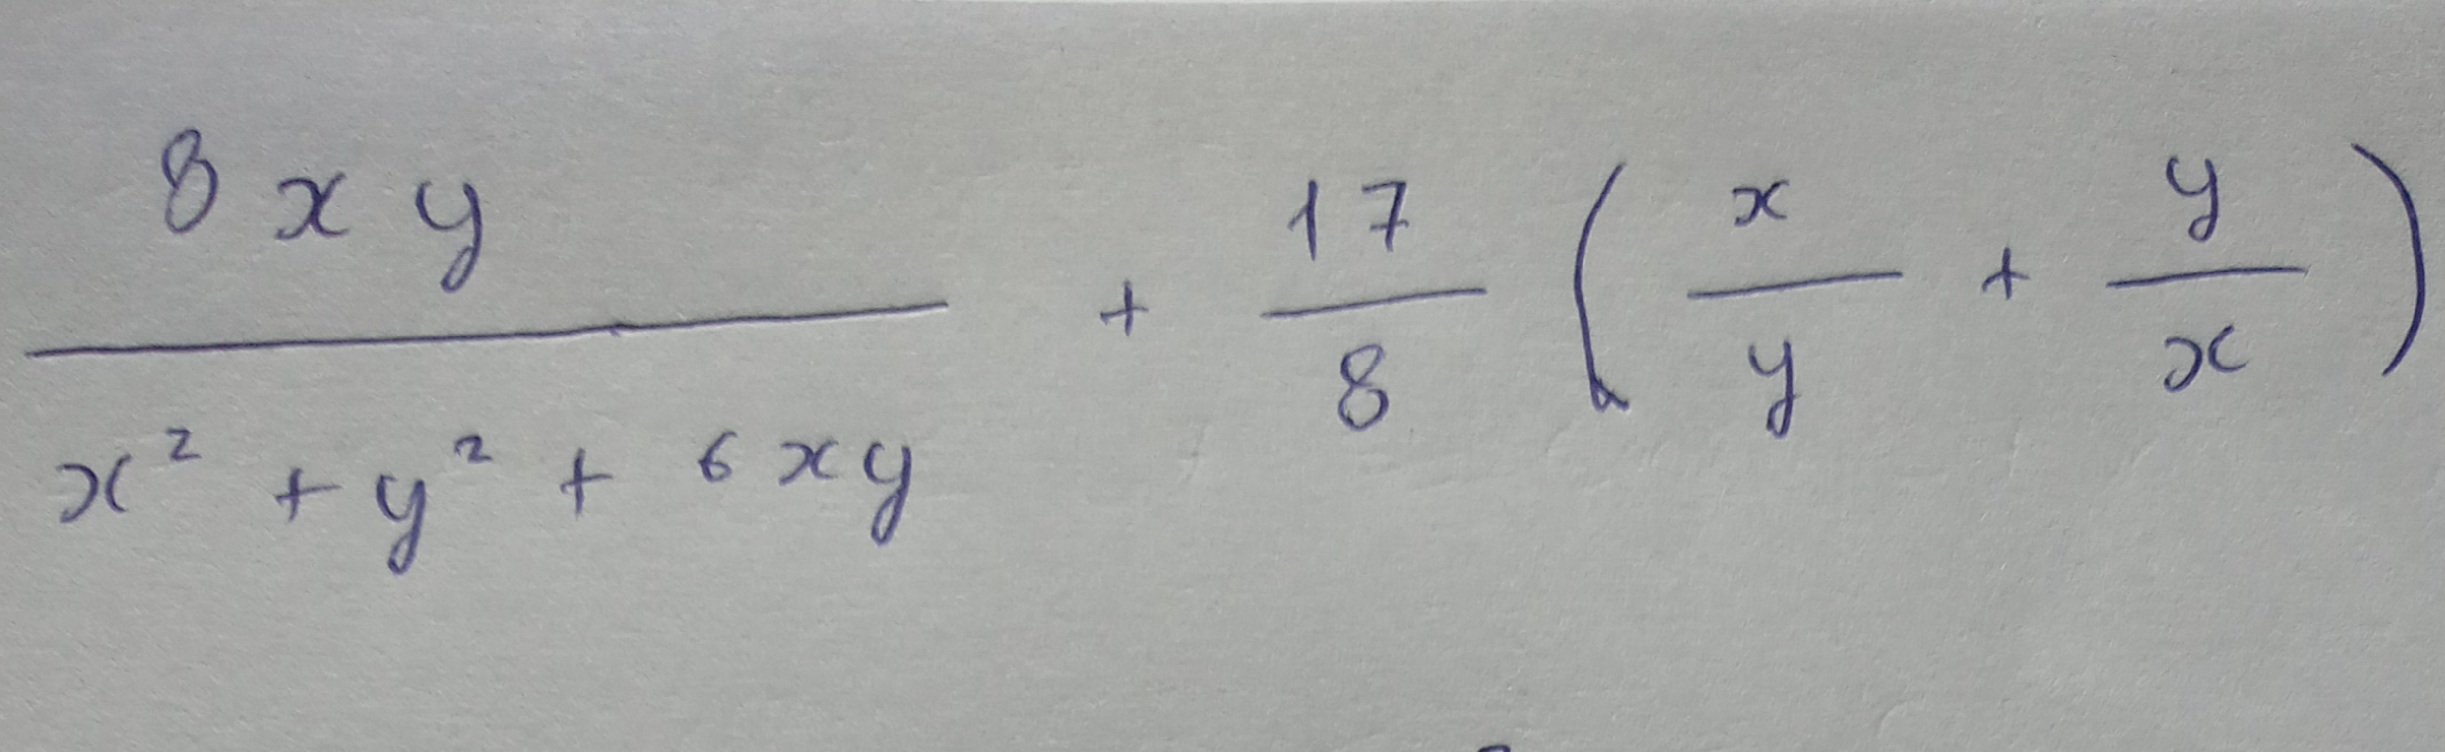 8xy / (x² + y² + 6xy) + 17/8 (x/y + y/x)